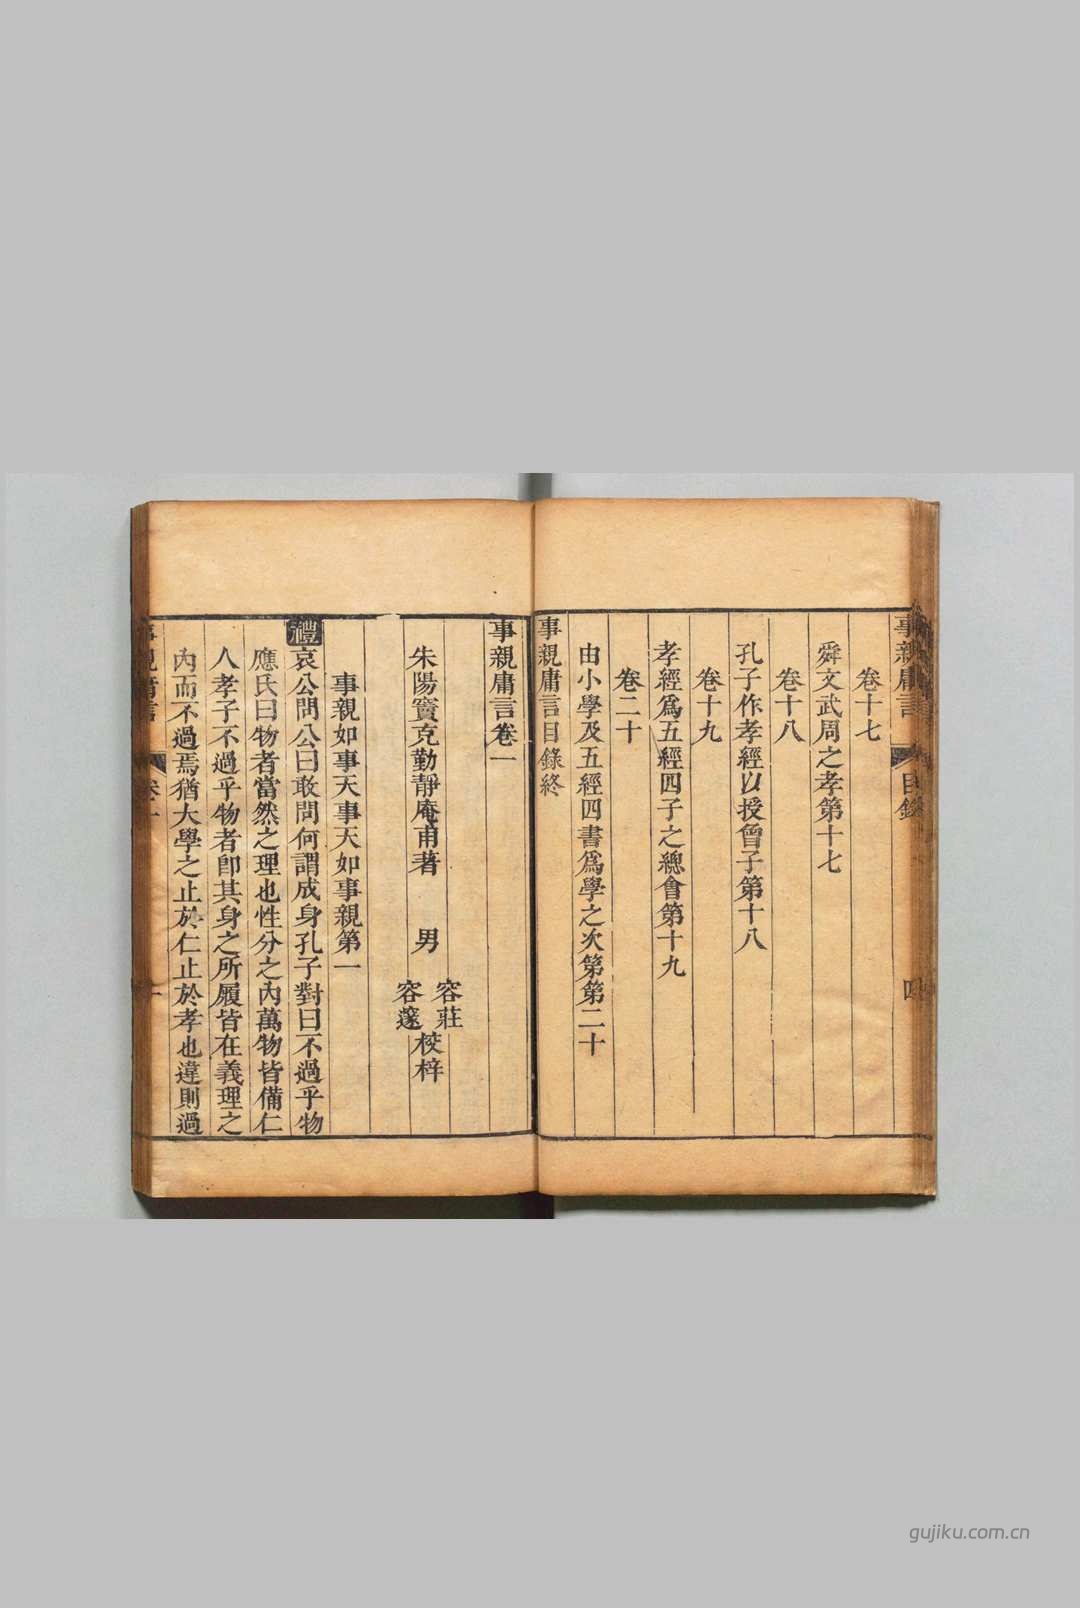 事親庸言 目錄 四
卷十七
舜文武周之孝第十七
卷十八
孔子作孝經以授曾子第十八
卷十九
孝經爲五經四子之總會第十九
卷二十
由小學及五經四書爲學之次第第二十
事親庸言目錄終
事親庸言卷一
朱陽竇克勤靜庵甫著 男 容莊 容邃 校梓
事親如事天事天如事親第一
禮哀公問公曰敢問何謂成身孔子對曰不過乎物
應氏曰物者當然之理也性分之內萬物皆備仁
人孝子不過乎物者卽其身之所履皆在義理之
內而不過焉猶大學之止於仁止於孝也違則過
事親庸言 卷一 一
gujiku.com.cn